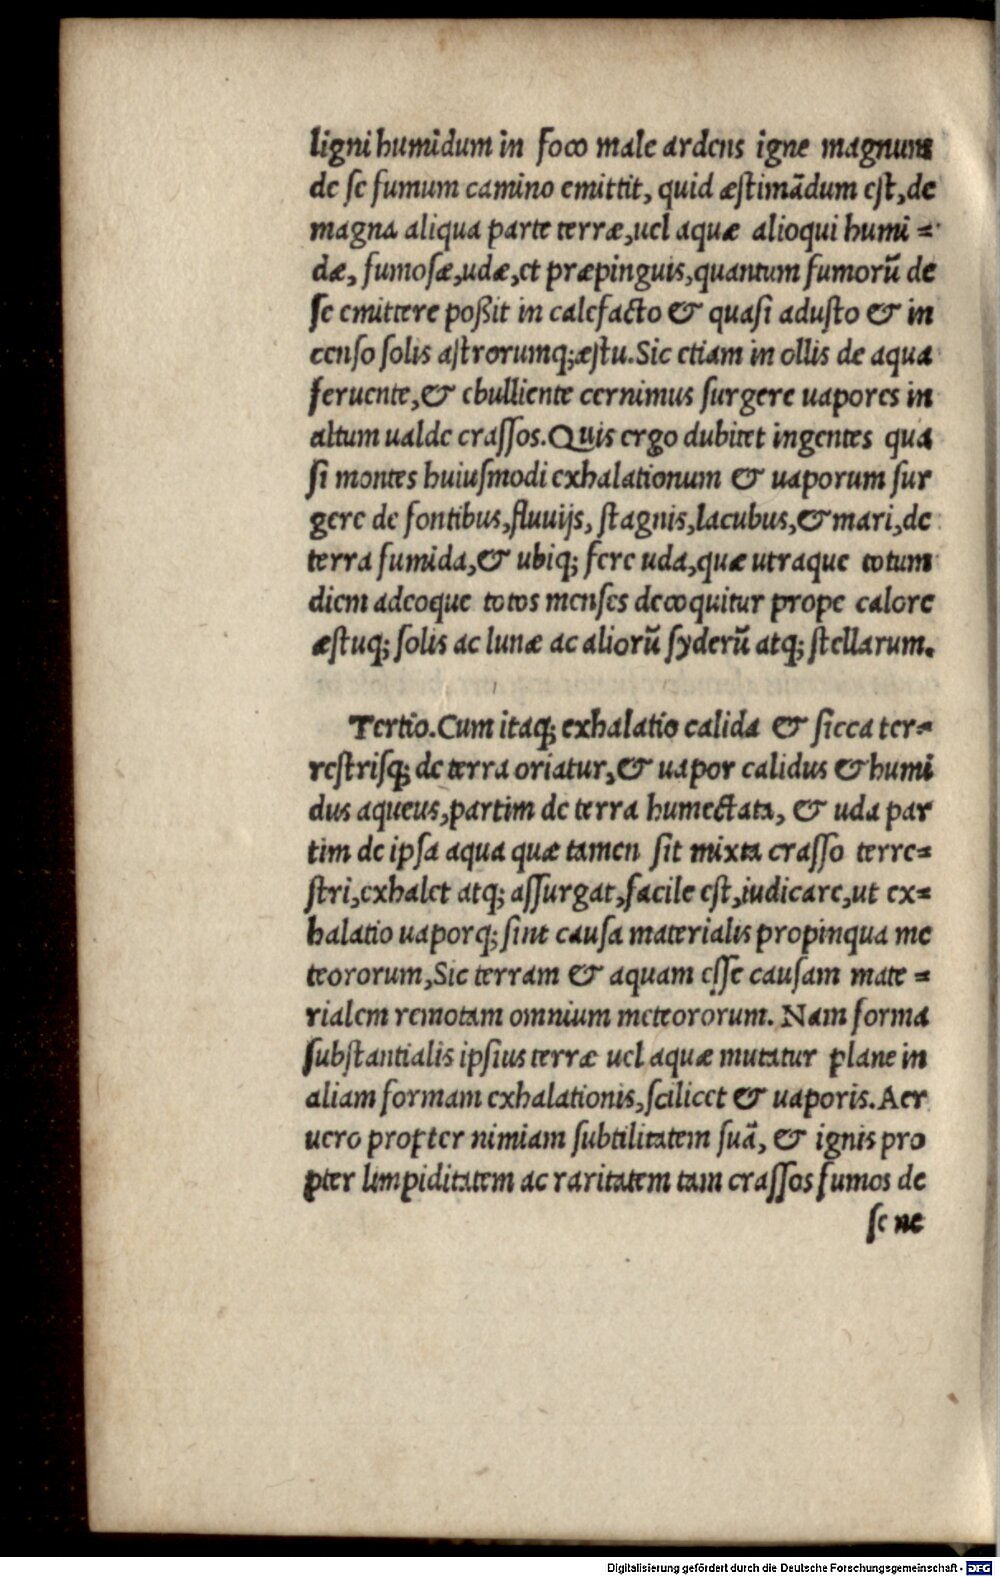 ligni humidum in foco male ardens igne magnum
de se fumum camino emittit, quid æstimãdum est, de
magna aliqua parte terræ, uel aquæ alioqui humi=
dæ, fumosæ, udæ, et præpinguis, quantum fumorũ de
se emittere poßit in calefacto & quasi adusto & in
censo solis astrorumq; æstu. Sic etiam in ollis de aqua
feruente, & ebulliente cernimus surgere uapores in
altum ualde crassos. Quis ergo dubitet ingentes qua
si montes huiusmodi exhalationum & uaporum sur
gere de fontibus, fluuijs, stagnis, lacubus, & mari, de
terra fumida, & ubiq; fere uda, quæ utraque totum
diem adeoque totos menses decoquitur prope calore
æstuq; solis ac lunæ ac aliorũ syderũ atq; stellarum.
Tertio. Cum itaq; exhalatio calida & sicca ter=
restrisq; de terra oriatur, & uapor calidus & humi
dus aqueus, partim de terra humectata, & uda par
tim de ipsa aqua quæ tamen sit mixta crasso terre=
stri, exhalet atq; assurgat, facile est, iudicare, ut ex=
halatio uaporq; sint causa materialis propinqua me
teororum, Sic terram & aquam esse causam mate=
rialem remotam omnium meteororum. Nam forma
substantialis ipsius terræ uel aquæ mutatur plane in
aliam formam exhalationis, scilicet & uaporis. Aer
uero propter nimiam subtilitatem suã, & ignis pro
pter limpiditatem ac raritatem tam crassos fumos de
se ne
Digitalisierung gefördert durch die Deutsche Forschungsgemeinschaft - DFG